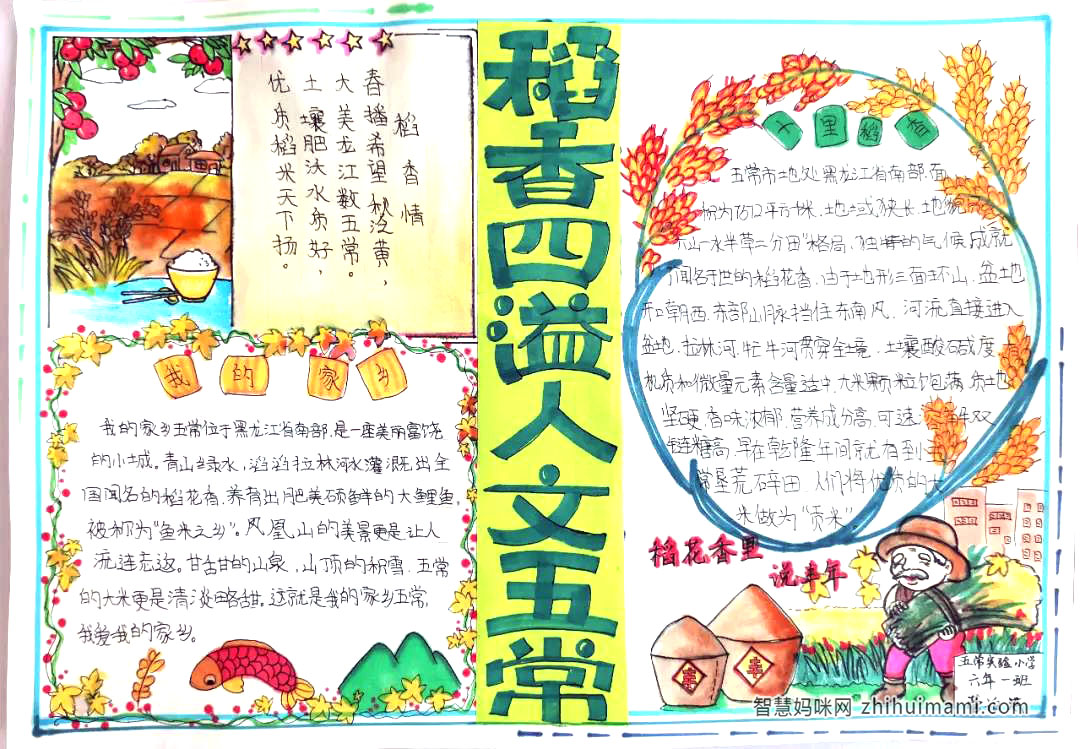 稻香四溢人文五常
稻香情
春播希望秋没黄，
大美龙江数五常。
土壤肥沃水质好，
优质稻米天下扬。
我的家乡
我的家乡五常位于黑龙江省南部，是一座美丽富饶
的小城。青山绿水，滔滔拉林河水灌溉出全
国闻名的稻花香，养育出肥美硕鲜的大鲤鱼，
被称为“鱼米之乡”。凤凰山的美景更是让人
流连忘返。甘甜甜的山泉，山顶的积雪，五常
的大米更是清淡略甜。这就是我的家乡五常，
我爱我的家乡。
十里稻香
五常市地处黑龙江省南部，面
积为7512平方千米，地域狭长，地貌
六山一水半草二分田”格局，独特的气候成就
闻名于世的稻花香，由于地形三面环山，盆地
开口朝西，东部山脉挡住东南风，河流直接进入
盆地，拉林河，牤牛河贯穿全境，土壤酸碱度
机质和微量元素含量适中，大米颗粒饱满，质地
坚硬，香味浓郁，营养成分高，可速溶
双链糖高，早在乾隆年间就有
常垦荒碎田，人们将优质的大
米做为“贡米”。
稻花香里
说丰年
丰
丰
五常实验小学
六年一班
智慧妈咪网 zhihuimami.com